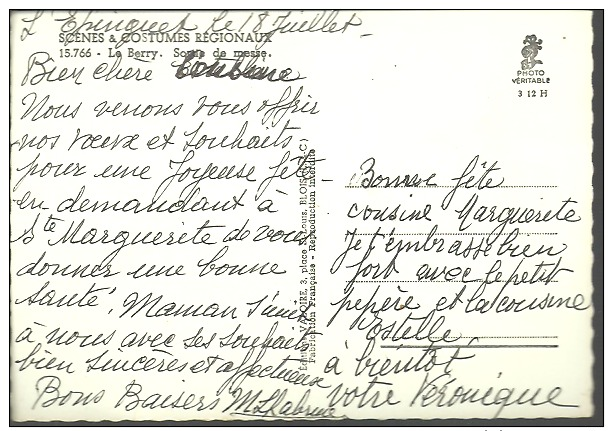 L'Epinguet le 18 Juillet
SCÈNES & COSTUMES RÉGIONAUX
15.766 - Le Berry. Sortie de messe.
Bien chère Cousine
Nous venons vous offrir
nos voeux et souhaits
pour une Joyeuse fête
en demandant à
Ste Marguerite de vous
donner une bonne
santé. Maman s'unie
à nous avec ses souhaits
bien sincères et affectueux
Bons Baisers
PHOTO
VÉRITABLE
3 12 H
Éditions VALOIRE, 3, place St-Louis, BLOIS
Fabrication Française - Reproduction interdite
Bonne fête
cousine Marguerete
Je t'embrasse bien
fort avec le petit
pepère et la cousine
Estelle
à bientôt
votre Véronique